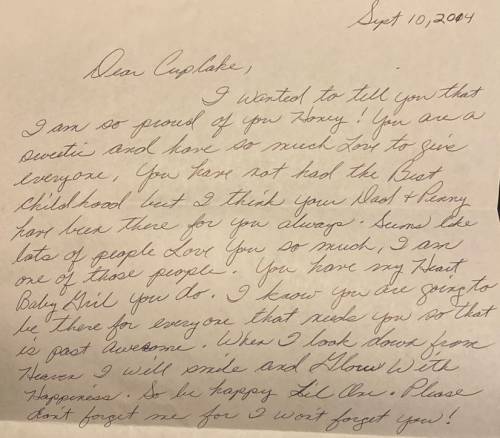 Sept 10, 2004
Dear Cuplake,
I wanted to tell you that
I am so proud of you Honey! You are a
sweetie and have so much Love to give
everyone, You have not had the Best
childhood but I think your Dad + Penny
have been there for you always. Seems like
lots of people Love You so much, I am
one of those people. You have my Heart
Baby Gril You do. I know you are going to
be there for everyone that needs you so that
is past awesome. When I look down from
Heaven I will smile and Glow With
Happiness. So be happy Lil One. Please
don't forget me for I won't forget you!